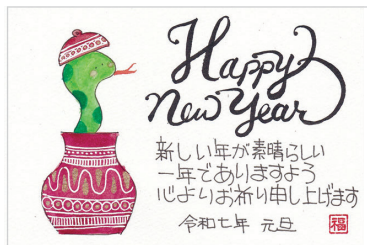 Happy
New Year
新しい年が素晴らしい
一年でありますよう
心よりお祈り申し上げます
令和七年 元旦
福